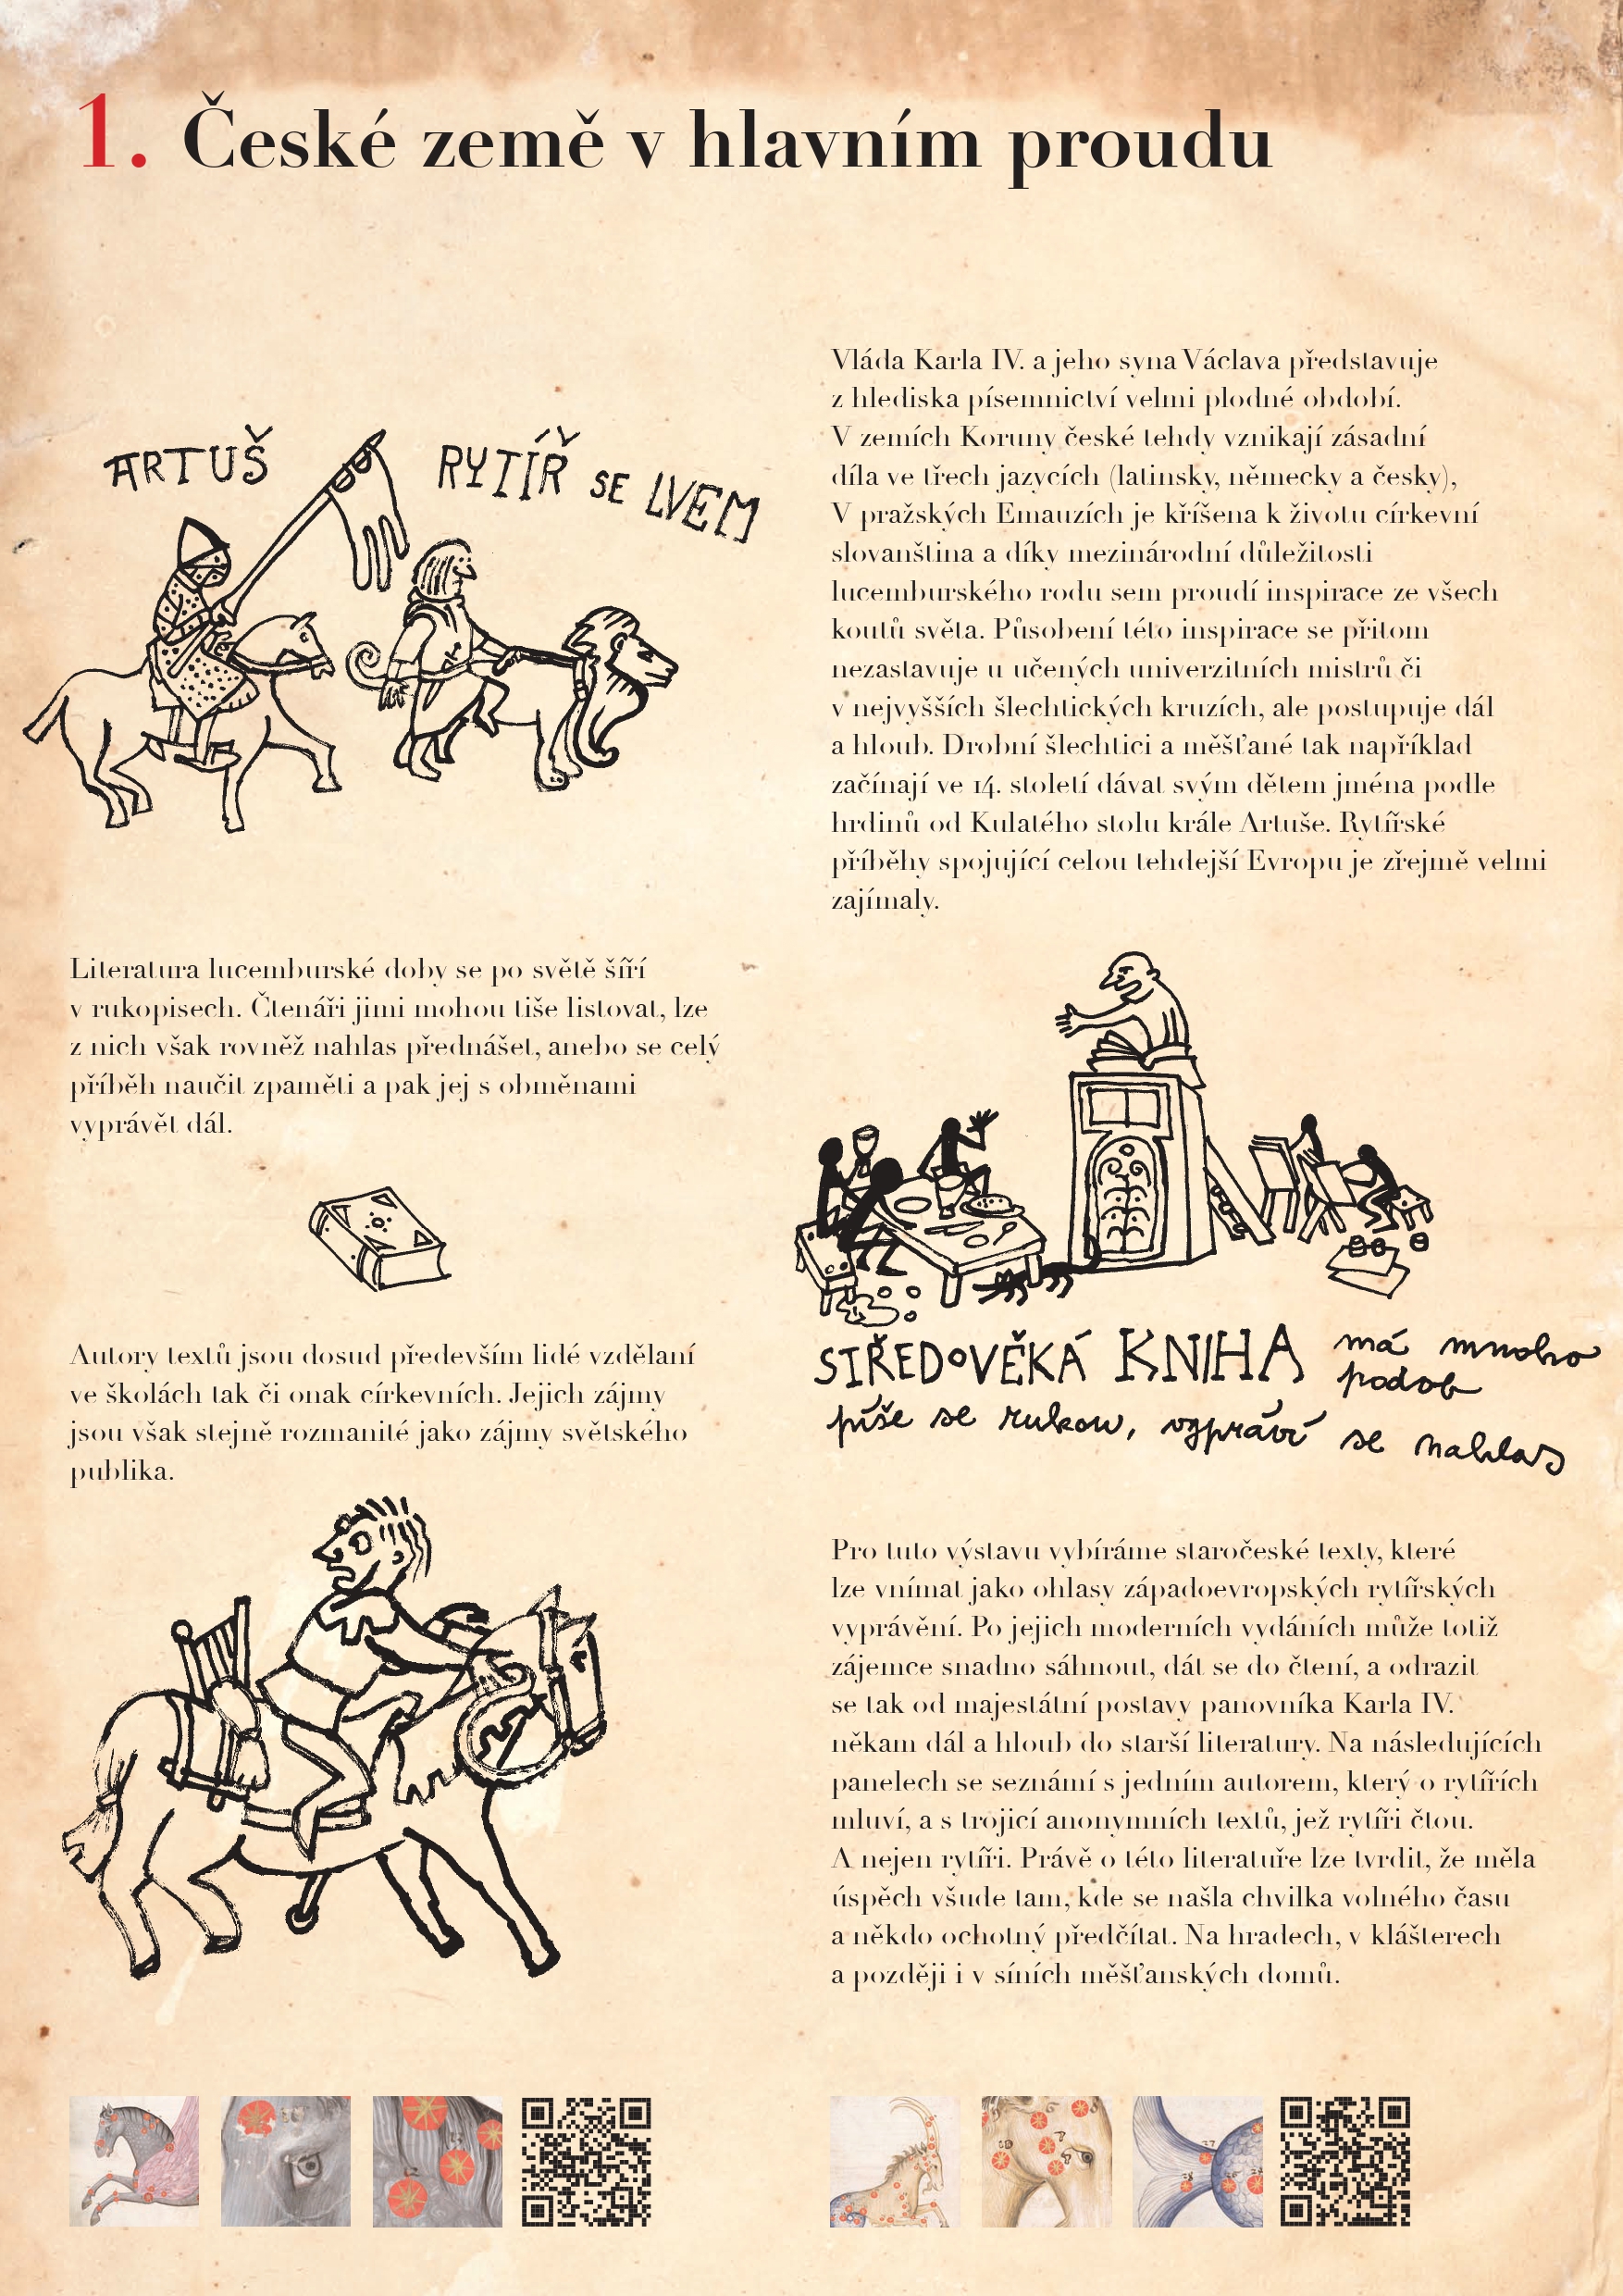 1. České země v hlavním proudu
ARTUŠ
RYTÍŘ SE LVEM
Vláda Karla IV. a jeho syna Václava představuje
z hlediska písemnictví velmi plodné období.
V zemích Koruny české tehdy vznikají zásadní
díla ve třech jazycích (latinsky, německy a česky),
V pražských Emauzích je kříšena k životu církevní
slovanština a díky mezinárodní důležitosti
lucemburského rodu sem proudí inspirace ze všech
koutů světa. Působení této inspirace se přitom
nezastavuje u učených univerzitních mistrů či
v nejvyšších šlechtických kruzích, ale postupuje dál
a hloub. Drobní šlechtici a měšťané tak například
začínají ve 14. století dávat svým dětem jména podle
hrdinů od Kulatého stolu krále Artuše. Rytířské
příběhy spojující celou tehdejší Evropu je zřejmě velmi
zajímaly.
Literatura lucemburské doby se po světě šíří
v rukopisech. Čtenáři jimi mohou tiše listovat, lze
z nich však rovněž nahlas přednášet, anebo se celý
příběh naučit zpaměti a pak jej s obměnami
vyprávět dál.
Autory textů jsou dosud především lidé vzdělaní
ve školách tak či onak církevních. Jejich zájmy
jsou však stejně rozmanité jako zájmy světského
publika.
STŘEDOVĚKÁ KNIHA má mnoho
podob
píše se rukou, vypráví se nahlas
Pro tuto výstavu vybíráme staročeské texty, které
lze vnímat jako ohlasy západoevropských rytířských
vyprávění. Po jejich moderních vydáních může totiž
zájemce snadno sáhnout, dát se do čtení, a odrazit
se tak od majestátní postavy panovníka Karla IV.
někam dál a hloub do starší literatury. Na následujících
panelech se seznámí s jedním autorem, který o rytířích
mluví, a s trojicí anonymních textů, jež rytíři čtou.
A nejen rytíři. Právě o této literatuře lze tvrdit, že měla
úspěch všude tam, kde se našla chvilka volného času
a někdo ochotný předčítat. Na hradech, v klášterech
a později i v síních měšťanských domů.